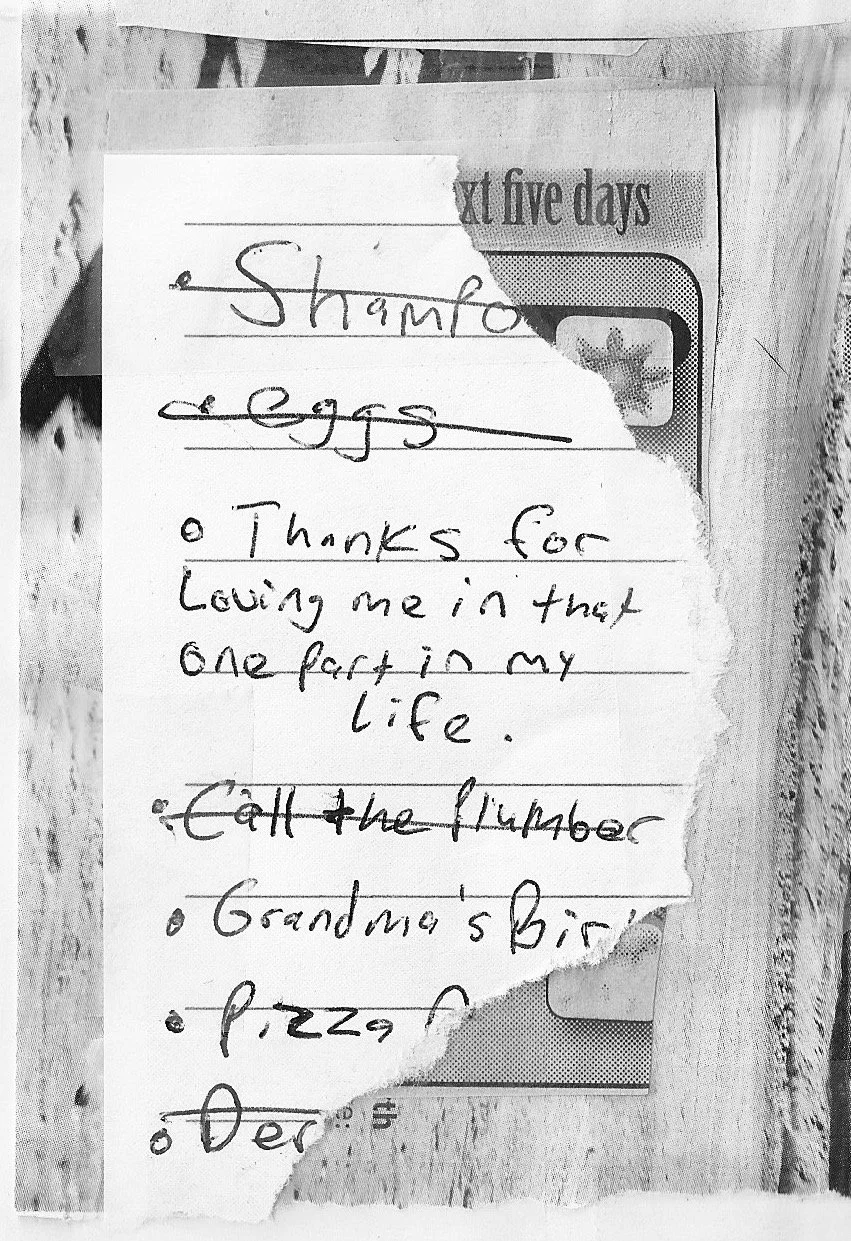 xt five days
• Shampo
• eggs
• Thanks for
Loving me in that
one part in my
life.
• Call the plumber
• Grandma's Bir
• Pizza
• Der
th